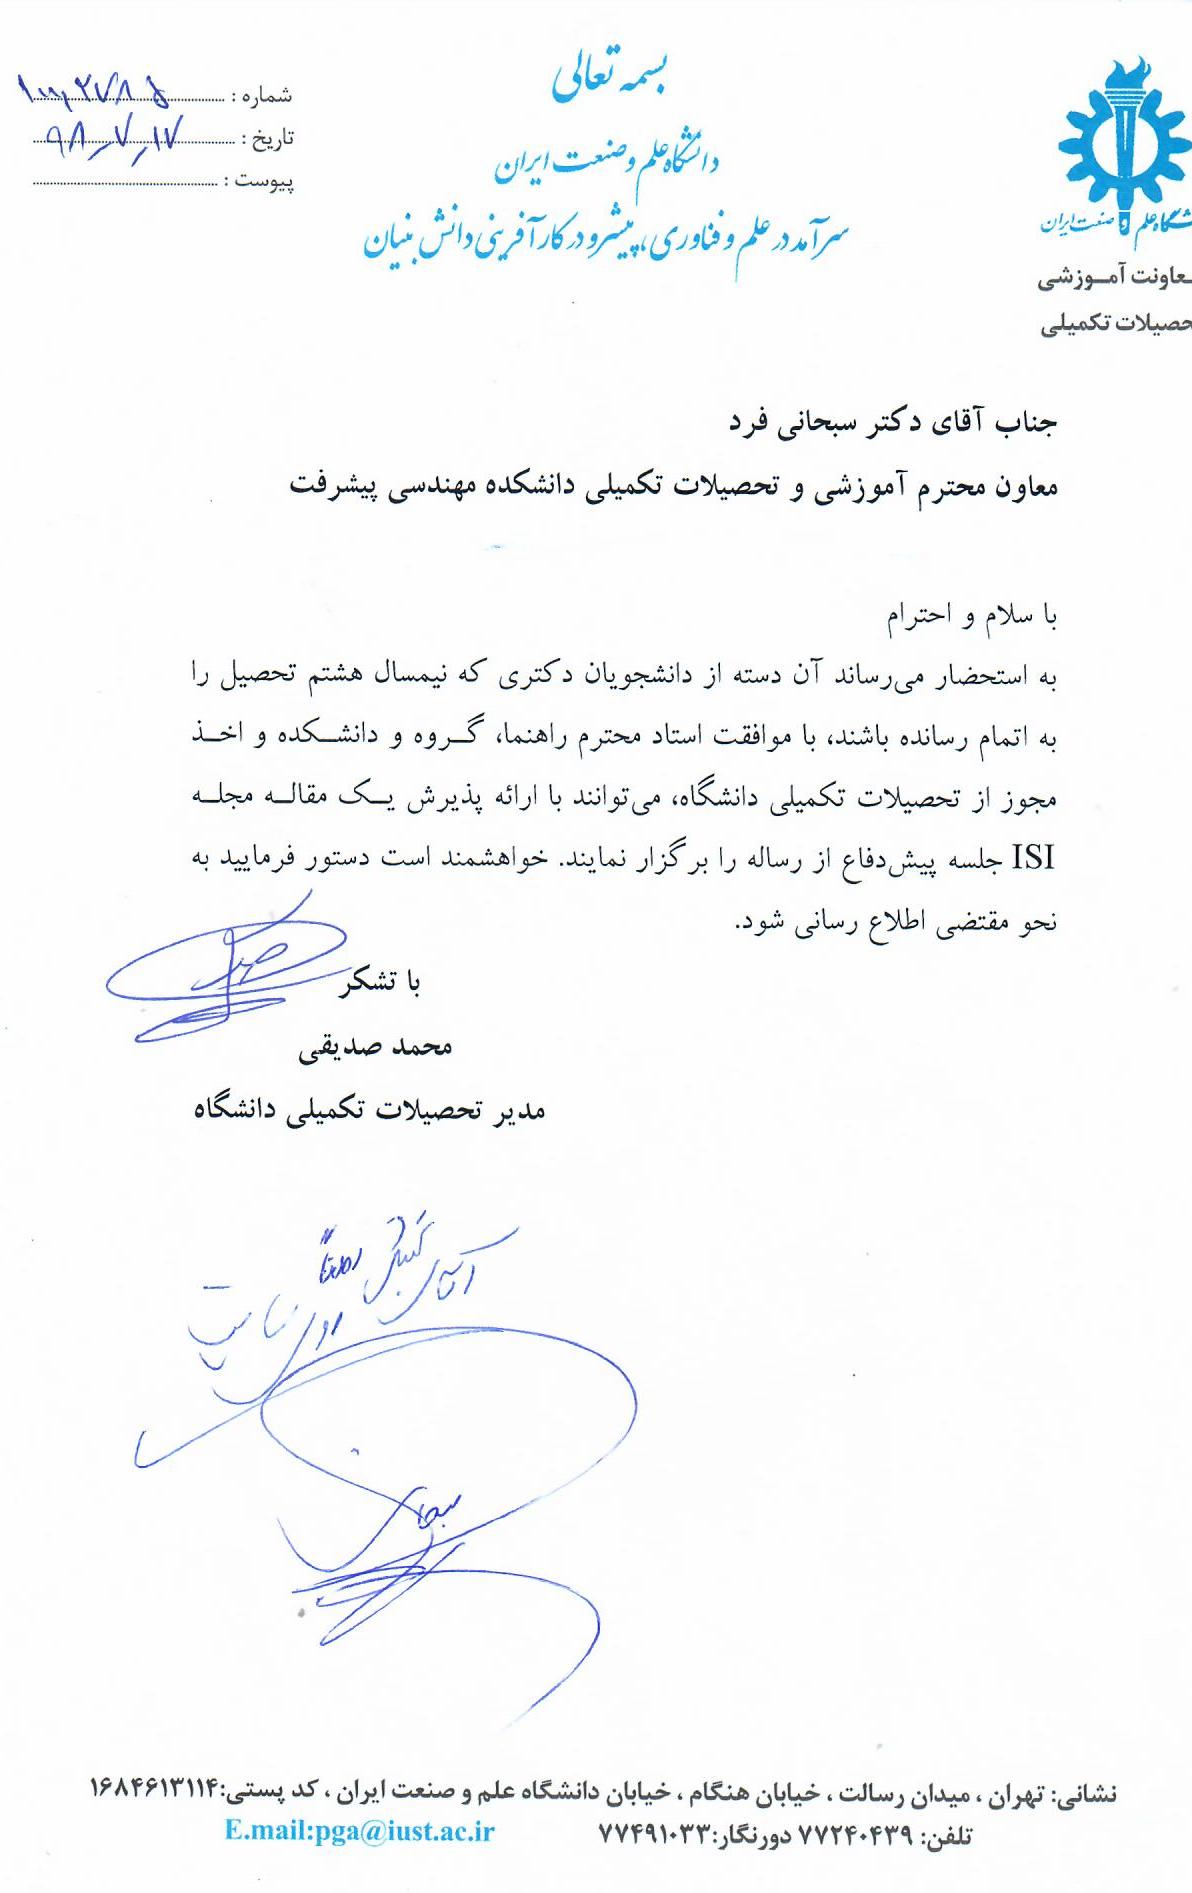 بسمه تعالی
دانشگاه علم و صنعت ایران
سرآمد در علم و فناوری، پیشرو در کارآفرینی دانش بنیان
شماره :
تاریخ : ۹۸-۷-۱۷
پیوست :
شگاه علم و صنعت ایران
عاونت آمـوزشی
حصیلات تکمیلی
جناب آقای دکتر سبحانی فرد
معاون محترم آموزشی و تحصیلات تکمیلی دانشکده مهندسی پیشرفت
با سلام و احترام
به استحضار می‌رساند آن دسته از دانشجویان دکتری که نیمسال هشتم تحصیل را
به اتمام رسانده باشند، با موافقت استاد محترم راهنما، گـروه و دانشـکده و اخـذ
مجوز از تحصیلات تکمیلی دانشگاه، می‌توانند با ارائه پذیرش یـک مقالـه مجلـه
ISI جلسه پیش‌دفاع از رساله را برگزار نمایند. خواهشمند است دستور فرمایید به
نحو مقتضی اطلاع رسانی شود.
با تشکر
محمد صدیقی
مدیر تحصیلات تکمیلی دانشگاه
آقای
سایت
نشانی: تهران ، میدان رسالت ، خیابان هنگام ، خیابان دانشگاه علم و صنعت ایران ، کد پستی:۱۶۸۴۶۱۳۱۱۴
تلفن: ۷۷۲۴۰۴۳۹ دورنگار:۷۷۴۹۱۰۳۳ E.mail:pga@iust.ac.ir